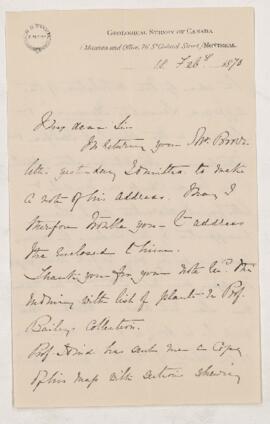 GEOLOGICAL SURVEY OF CANADA
(Museum and Office, 76 St Gabriel Street) MONTREAL
12 Feby 1870
My dear Sir
In returning you Mr. Brown's
letter yesterday I omitted to make
a note of his address. May I
therefore trouble you to address
the enclosed to him.
Thank you for your note this
morning with list of plants in Prof.
Bailey's Collection.
Prof. Hind has sent me a Copy
of his map with sections shewing